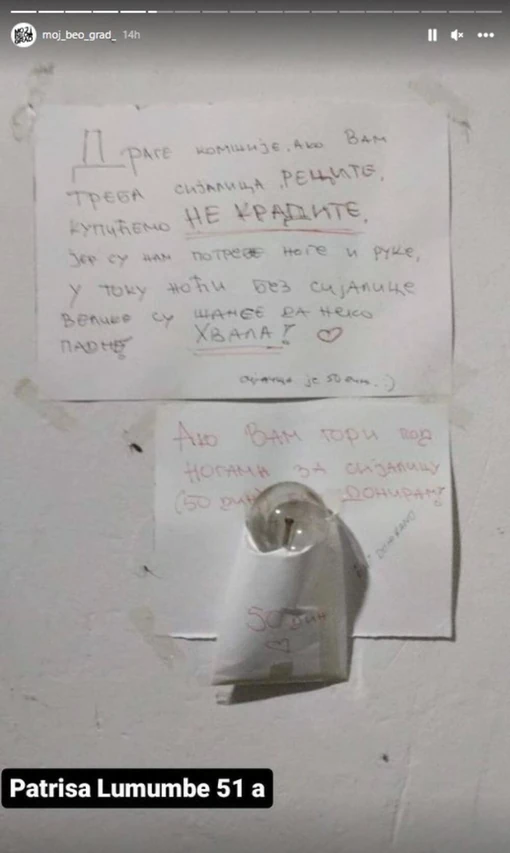 moj_beo_grad_ 14h
Драге комшије, ако Вам
треба сијалица, РЕЦИТЕ,
купићемо НЕ КРАДИТЕ,
јер су нам потребе ноге и руке,
у току ноћи без сијалице
велике су шансе да неко
падне ХВАЛА!
сијалица је 50 дин. :)
Ако Вам гори под
ногама за сијалицу
(50 дин) ДОНИРАМ
50 дин
Patrisa Lumumbe 51 a